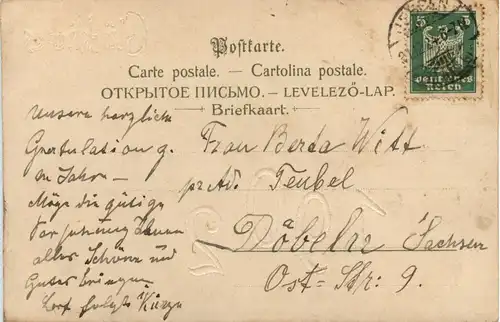 Postkarte.
Carte postale. — Cartolina postale.
ОТКРЫТОЕ ПИСЬМО. — LEVELEZŐ-LAP.
Briefkaart.
5 5
Deutsches
Reich
Unsere herzlich
Gratulation z.
n Jahre –
Möge die gütige
Vorsehung Ihnen
alles Schöne und
Gutes bringen
folgt i Kürze
Frau Berta Witt
pr. Ad. Teubel
Döbeln Sachsen
Ost-Str: 9.